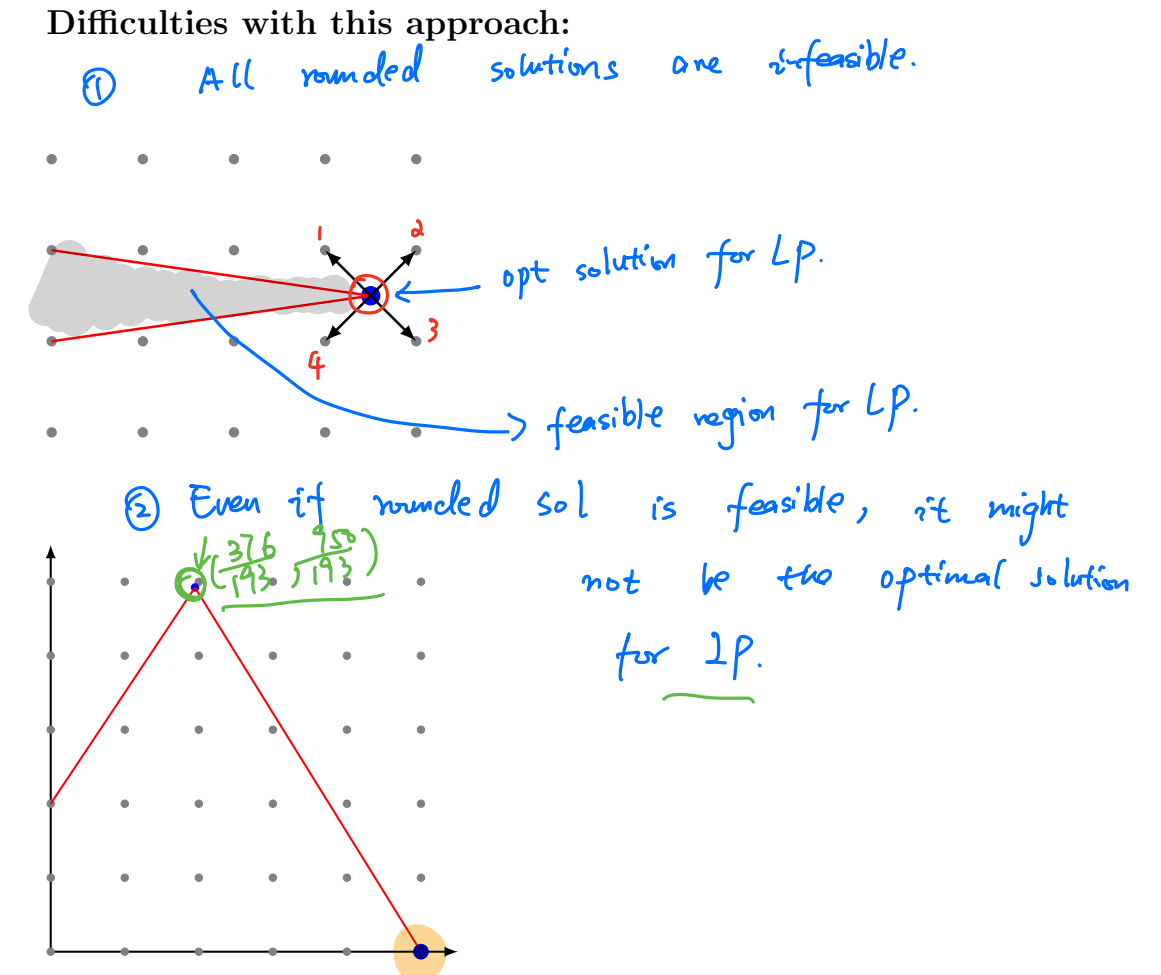 Difficulties with this approach:
① All rounded solutions are infeasible.
1 2
opt solution for LP.
3
4
feasible region for LP.
② Even if rounded sol is feasible, it might
(376/193, 950/193)
not be the optimal solution
for IP.